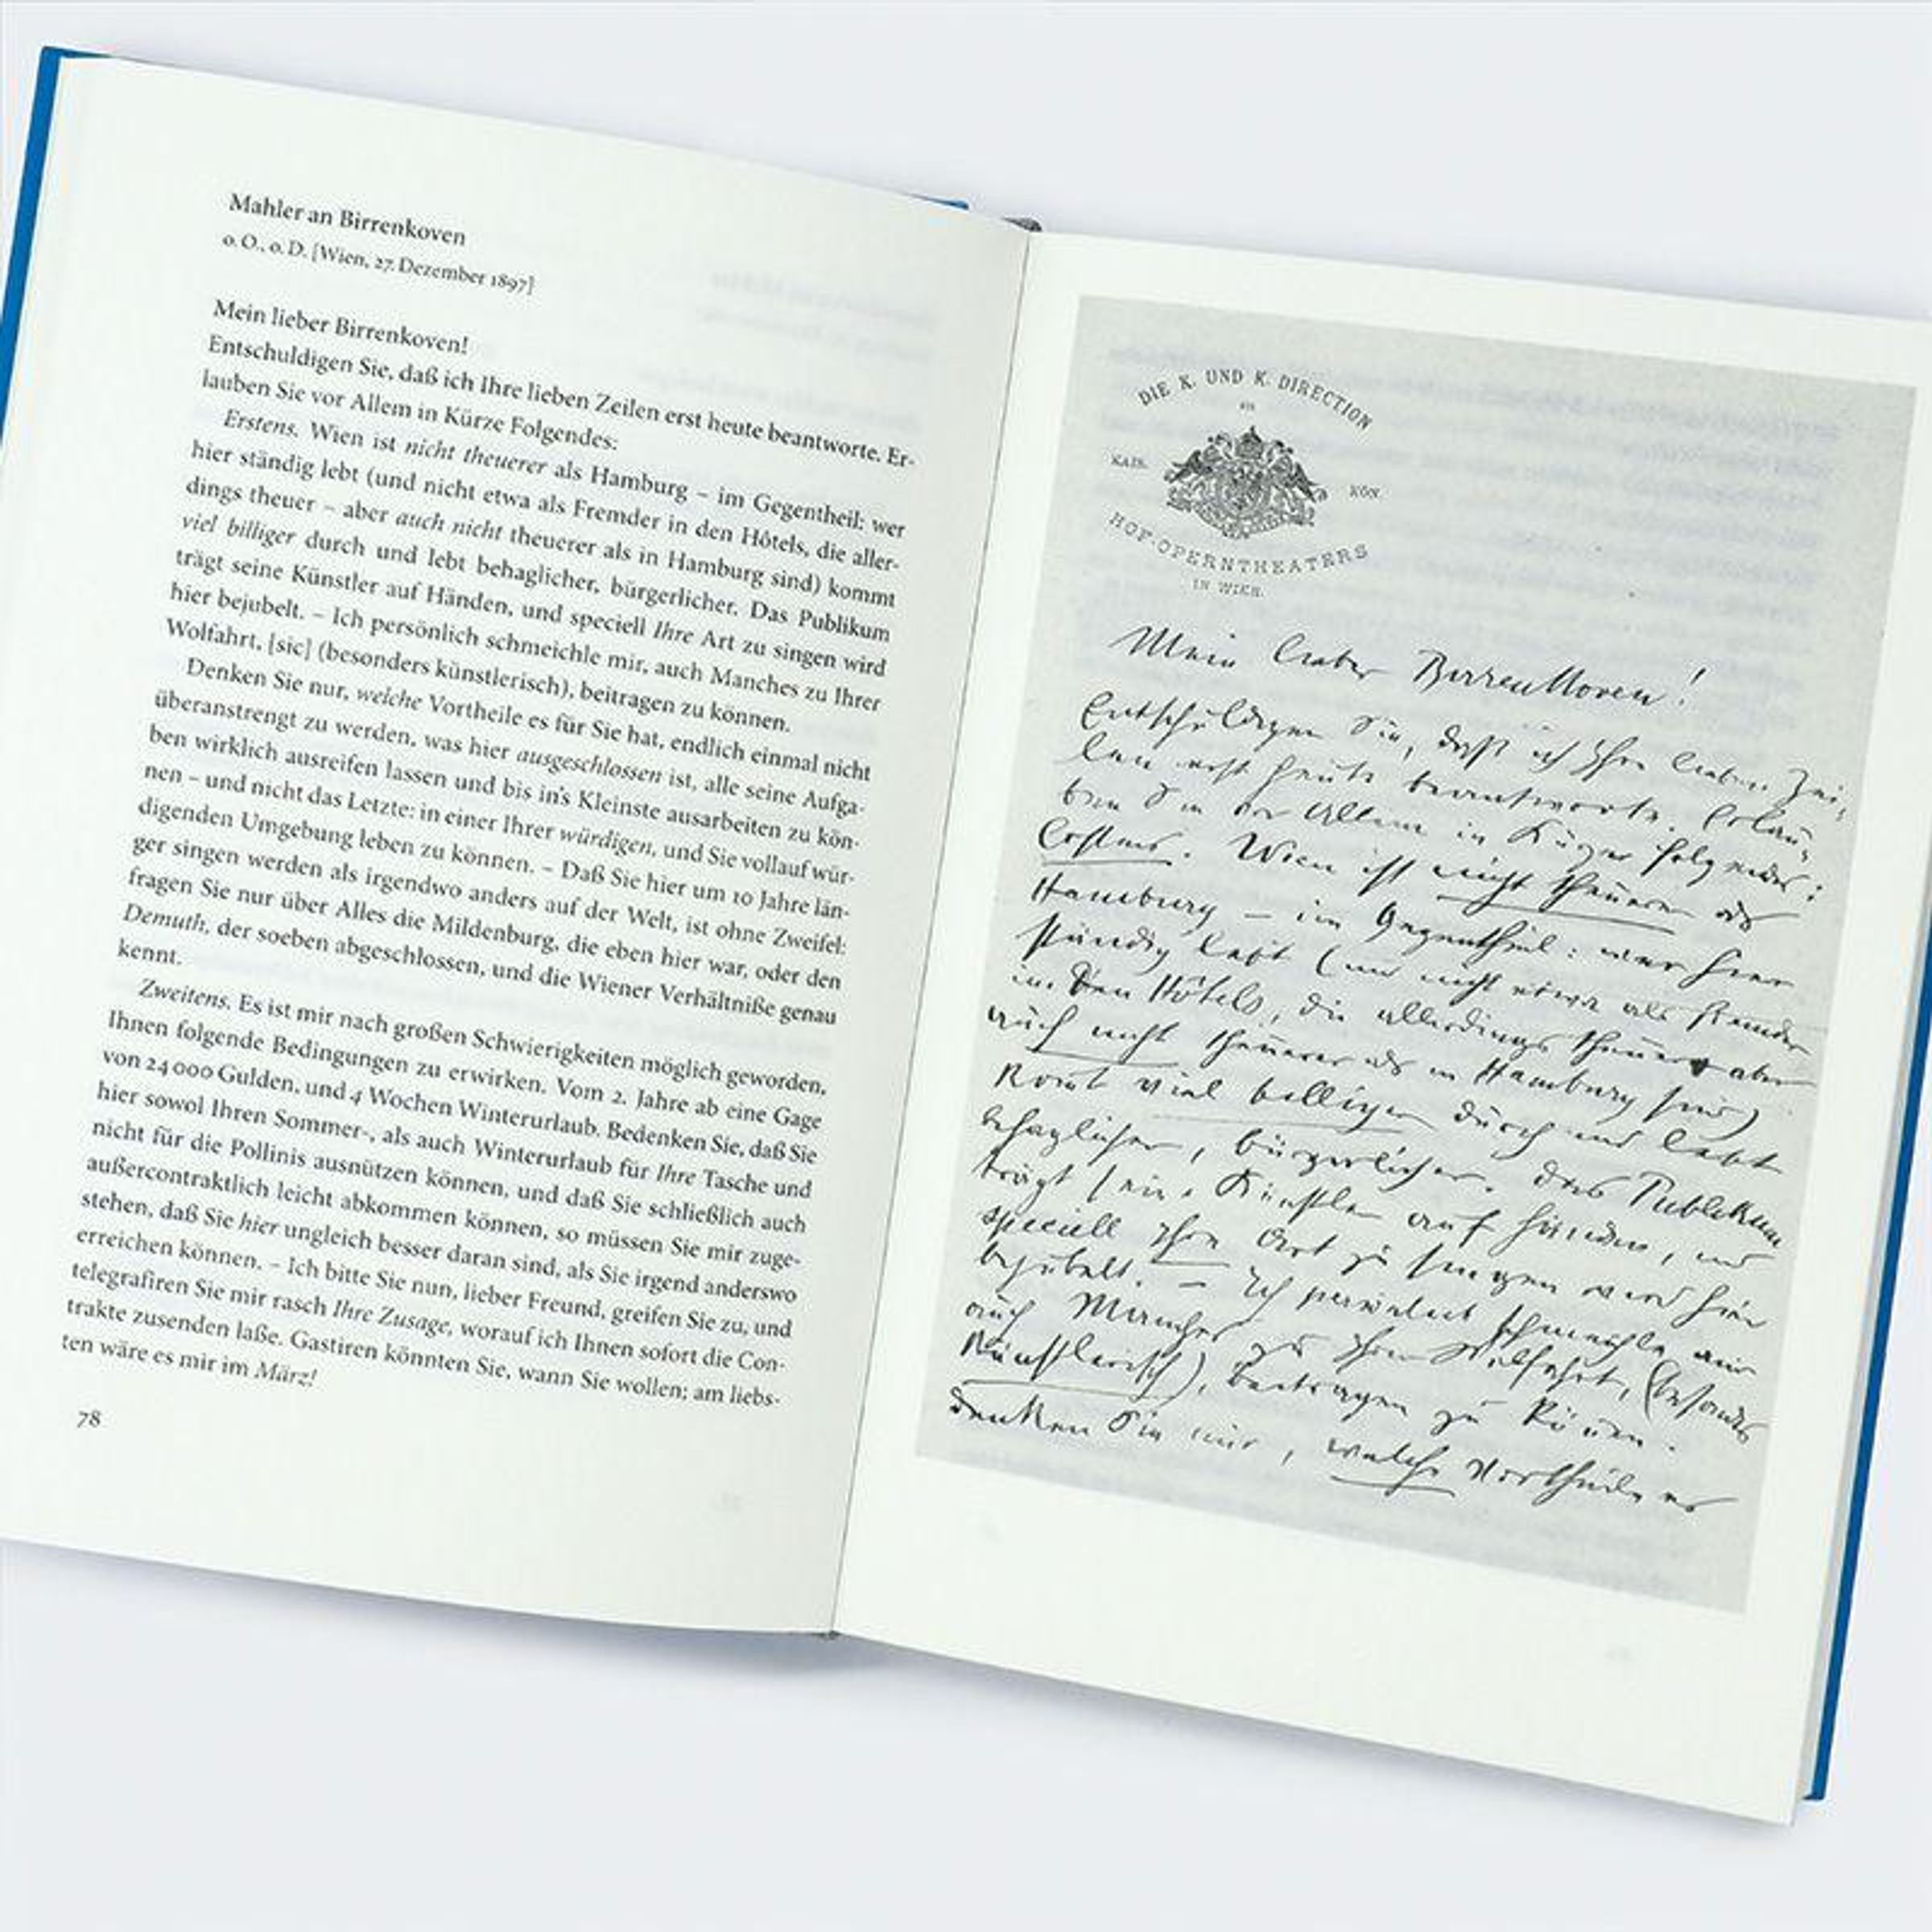 Mahler an Birrenkoven
o. O., o. D. [Wien, 27. Dezember 1897]
Mein lieber Birrenkoven!
Entschuldigen Sie, daß ich Ihre lieben Zeilen erst heute beantworte. Er-
lauben Sie vor Allem in Kürze Folgendes:
Erstens. Wien ist nicht theuerer als Hamburg – im Gegentheil: wer
hier ständig lebt (und nicht etwa als Fremder in den Hôtels, die aller-
dings theuer – aber auch nicht theuerer als in Hamburg sind) kommt
viel billiger durch und lebt behaglicher, bürgerlicher. Das Publikum
trägt seine Künstler auf Händen, und speciell Ihre Art zu singen wird
hier bejubelt. – Ich persönlich schmeichle mir, auch Manches zu Ihrer
Wolfahrt, [sic] (besonders künstlerisch), beitragen zu können.
Denken Sie nur, welche Vortheile es für Sie hat, endlich einmal nicht
überanstrengt zu werden, was hier ausgeschlossen ist, alle seine Aufga-
ben wirklich ausreifen lassen und bis in's Kleinste ausarbeiten zu kön-
nen – und nicht das Letzte: in einer Ihrer würdigen, und Sie vollauf wür-
digenden Umgebung leben zu können. – Daß Sie hier um 10 Jahre län-
ger singen werden als irgendwo anders auf der Welt, ist ohne Zweifel:
fragen Sie nur über Alles die Mildenburg, die eben hier war, oder den
Demuth, der soeben abgeschlossen, und die Wiener Verhältniße genau
kennt.
Zweitens. Es ist mir nach großen Schwierigkeiten möglich geworden,
Ihnen folgende Bedingungen zu erwirken. Vom 2. Jahre ab eine Gage
von 24 000 Gulden, und 4 Wochen Winterurlaub. Bedenken Sie, daß Sie
hier sowol Ihren Sommer-, als auch Winterurlaub für Ihre Tasche und
nicht für die Pollinis ausnützen können, und daß Sie schließlich auch
außercontraktlich leicht abkommen können, so müssen Sie mir zuge-
stehen, daß Sie hier ungleich besser daran sind, als Sie irgend anderswo
erreichen können. – Ich bitte Sie nun, lieber Freund, greifen Sie zu, und
telegrafiren Sie mir rasch Ihre Zusage, worauf ich Ihnen sofort die Con-
trakte zusenden laße. Gastiren könnten Sie, wann Sie wollen; am liebs-
ten wäre es mir im März!
78
DIE K. UND K. DIRECTION
DES
KAIS. KÖN.
HOF-OPERNTHEATERS
IN WIEN.
Mein lieber Birrenkoven!
Entschuldigen Sie, daß ich Ihre lieben Zei-
len erst heute beantworte. Erlau-
ben Sie vor Allem in Kürze Folgendes:
Erstens. Wien ist nicht theuerer als
Hamburg – im Gegentheil: wer hier
ständig lebt (und nicht etwa als Fremder
in den Hôtels, die allerdings theuer aber
auch nicht theuerer als in Hamburg sind)
komt viel billiger durch und lebt
behaglicher, bürgerlicher. Das Publikum
trägt seine Künstler auf Händen, und
speciell Ihre Art zu singen wird hier
bejubelt. – Ich persönlich schmeichle mir
auch Manches zu Ihrer Wolfahrt, (besonders
künstlerisch), beitragen zu können.
Denken Sie nur, welche Vortheile es